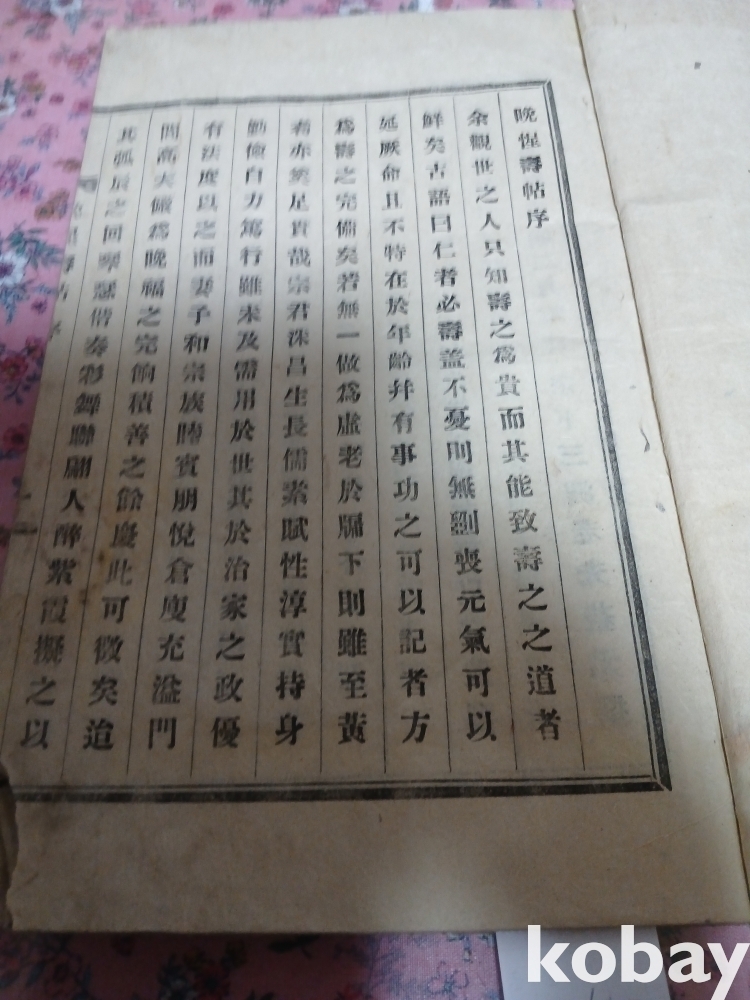 晩惺壽帖序
余觀世之人只知壽之爲貴而其能致壽之之道者
鮮矣古語曰仁者必壽盖不憂則無劉喪元氣可以
延厥命且不特在於年齡幷有事功之可以記者方
爲壽之完備矣若無一做爲虛老於牖下則雖至黃
耇亦奚足貴哉宗君洙昌生長儒素賦性淳實持身
勤儉自力篤行雖未及需用於世其於治家之政優
有法度以之而妻子和宗族睦賓朋悅倉廋充溢門
閭高大儘爲晩福之完餉積善之餘慶此可徵矣迨
其弧辰之回 俗奏彩舞聯翩人醉紫霞擬之以
kobay